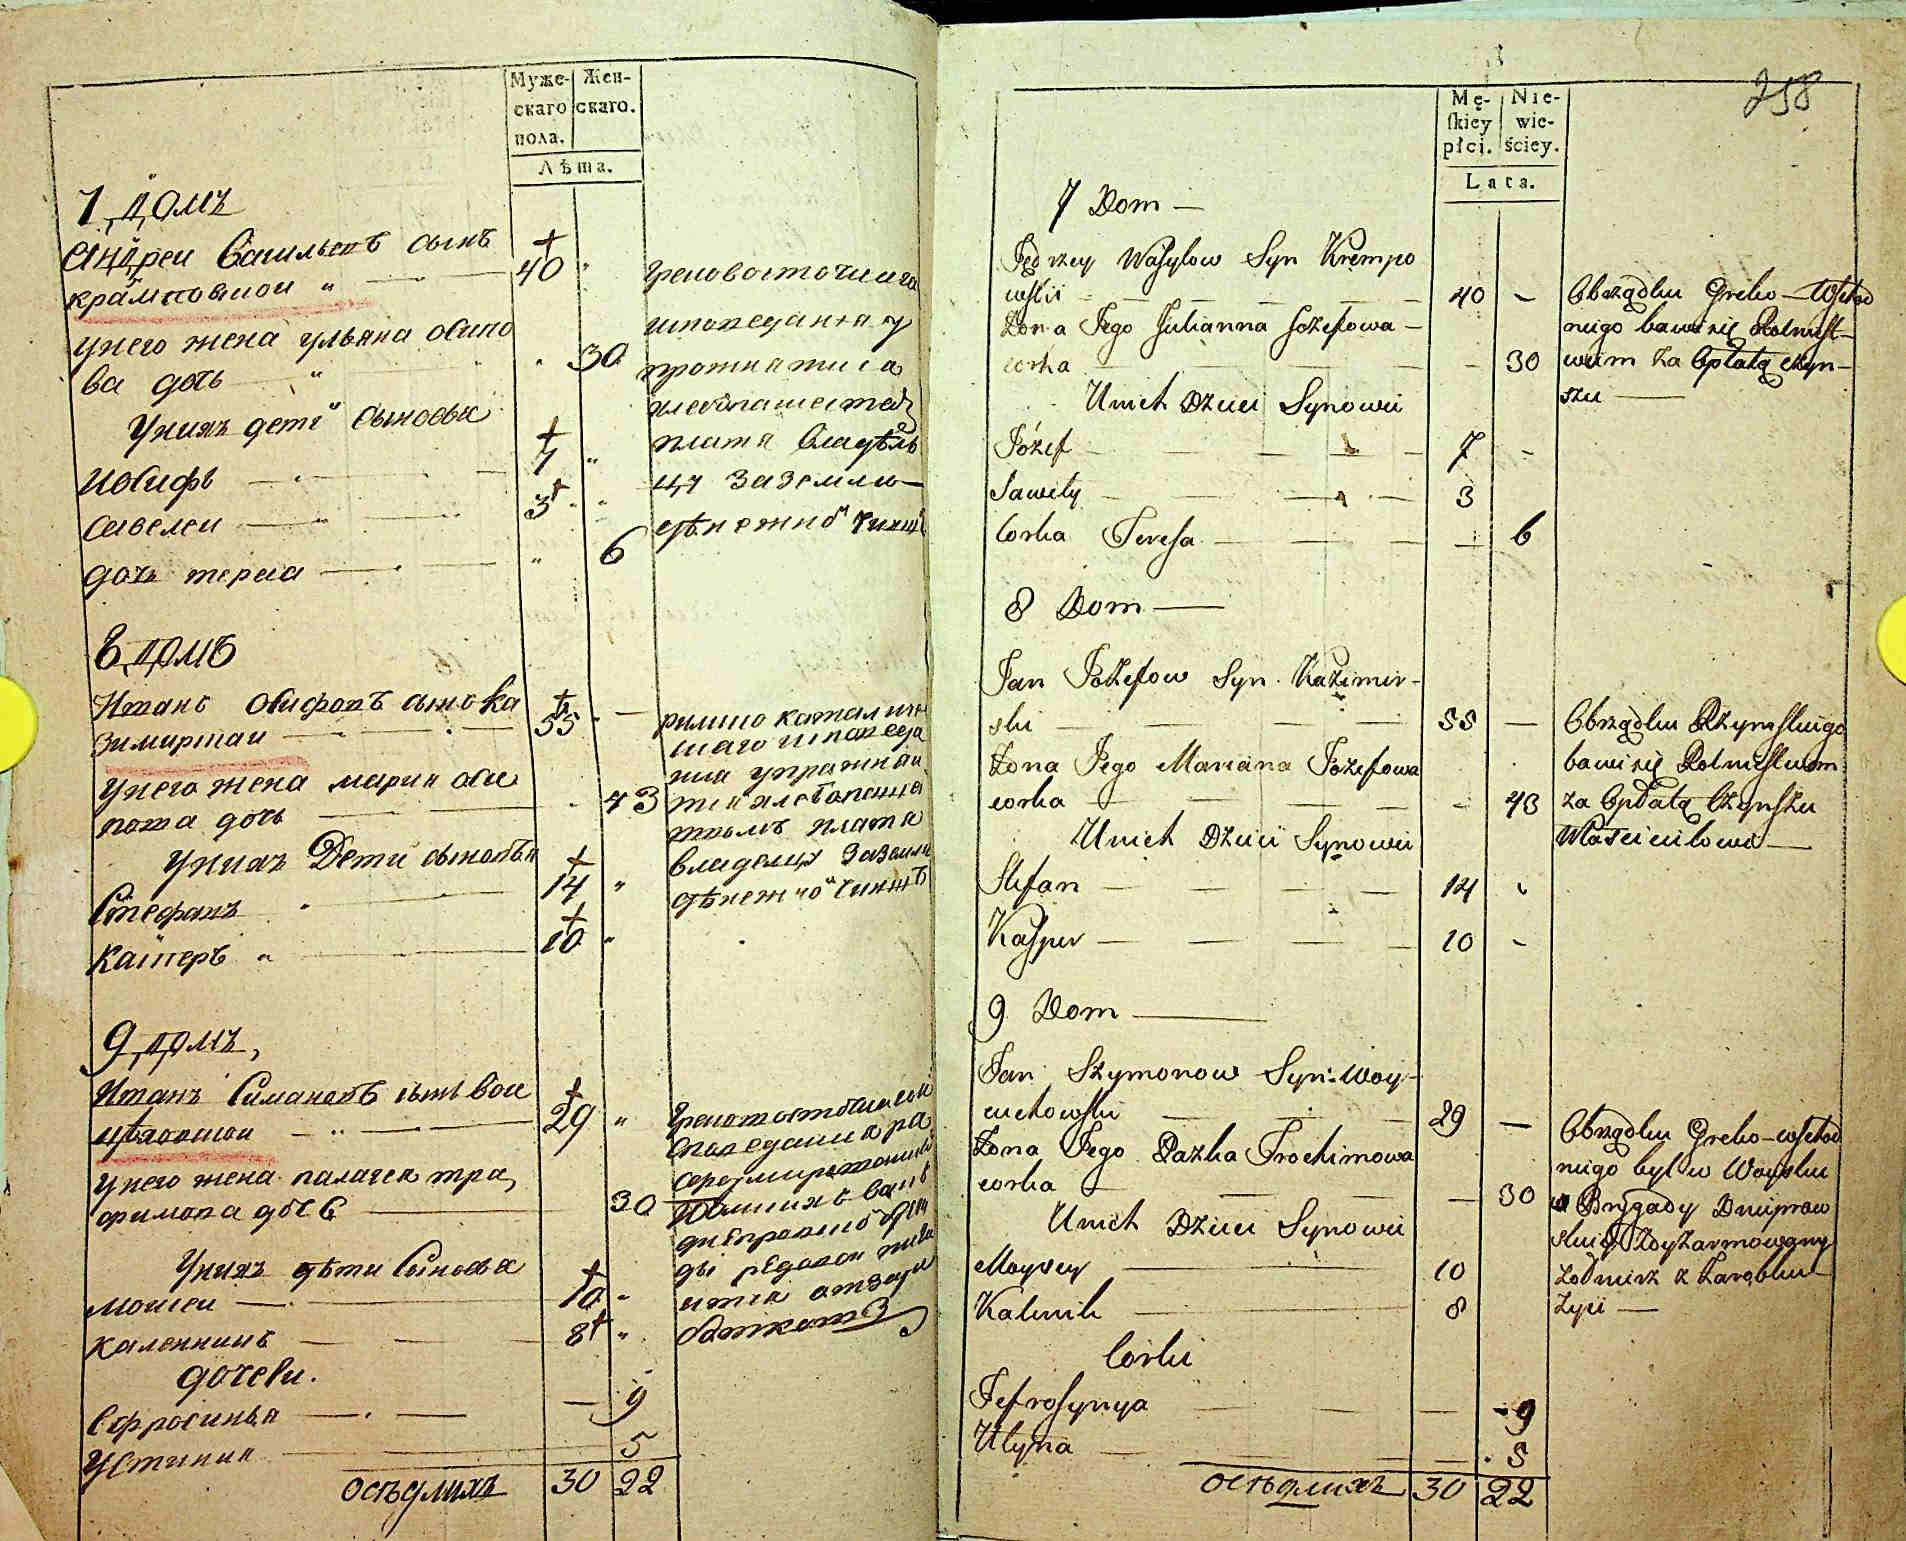 Муже-
скаго
пола.
Жен-
скаго.
Лѣта.
7 Домъ
Андреи Васильевъ сынъ
крамповскои
40
греко восточнаго
исповеданія у
У него жена ульяна осипо
ва дочь
30
У них дети Сыновья
плата владѣль
Иосифъ
7
цу за землю
Савелеи
3
дѣнежно чинш
дочь тереса
6
8 Домъ
Иванъ осиповъ сынъ ка
зимирскаи
55
римско католич
шаго исповеда
У него жена мария оси
пова дочь
43
тромъ плата
У них Дети сыновья
владелцу за земли
Стефанъ
14
дѣнежно чиншъ
Касперъ
10
9 домъ,
Иванъ Симановъ сынъ вои
цѣховскои
29
У него жена палагея тра
фимова дочь
30
У нихъ дѣти Сыновья
мосеи
10
каленникъ
8
дочери.
Ефросинья
9
Устиния
5
осѣдлихъ 30 22
258
Mę-
ſkiey
płci.
Nie-
wie-
ściey.
Lata.
7 Dom
Jędrzey Wasylow Syn Krempo
wski 40
Żona Jego Julianna Jozefowa
corka 30
Unich Dzieci Synowie
Józef 7
Sawely 3
Corka Teresa 6
Obrządku Greko-Wschod
niego bawi się Rolnict-
wem za Opłatą czyn-
szu
8 Dom
Jan Jozefow Syn Kazimir-
ski 55
Żona Jego Mariana Jozefowa
corka 43
Unich Dzieci Synowie
Stefan 14
Kasper 10
Obrządku Rzymskiego
bawi się Rolnictwem
za Opłatą Czynszu
Włascicielowi
9 Dom
Jan Szymonow Syn Woy-
ciechowski 29
Żona Jego Pazka Trochimowa
corka 30
Unich Dzieci Synowie
Moysey 10
Kalenik 8
Corki
Jefrosynya 9
Ulyna 5
Obrządku Greko-wschod
niego był w Woysku
w Brygady Dniprow
skiey Zdyzarmowany
Żołnierz z Zarobku
żyie
осѣдлихъ 30 22